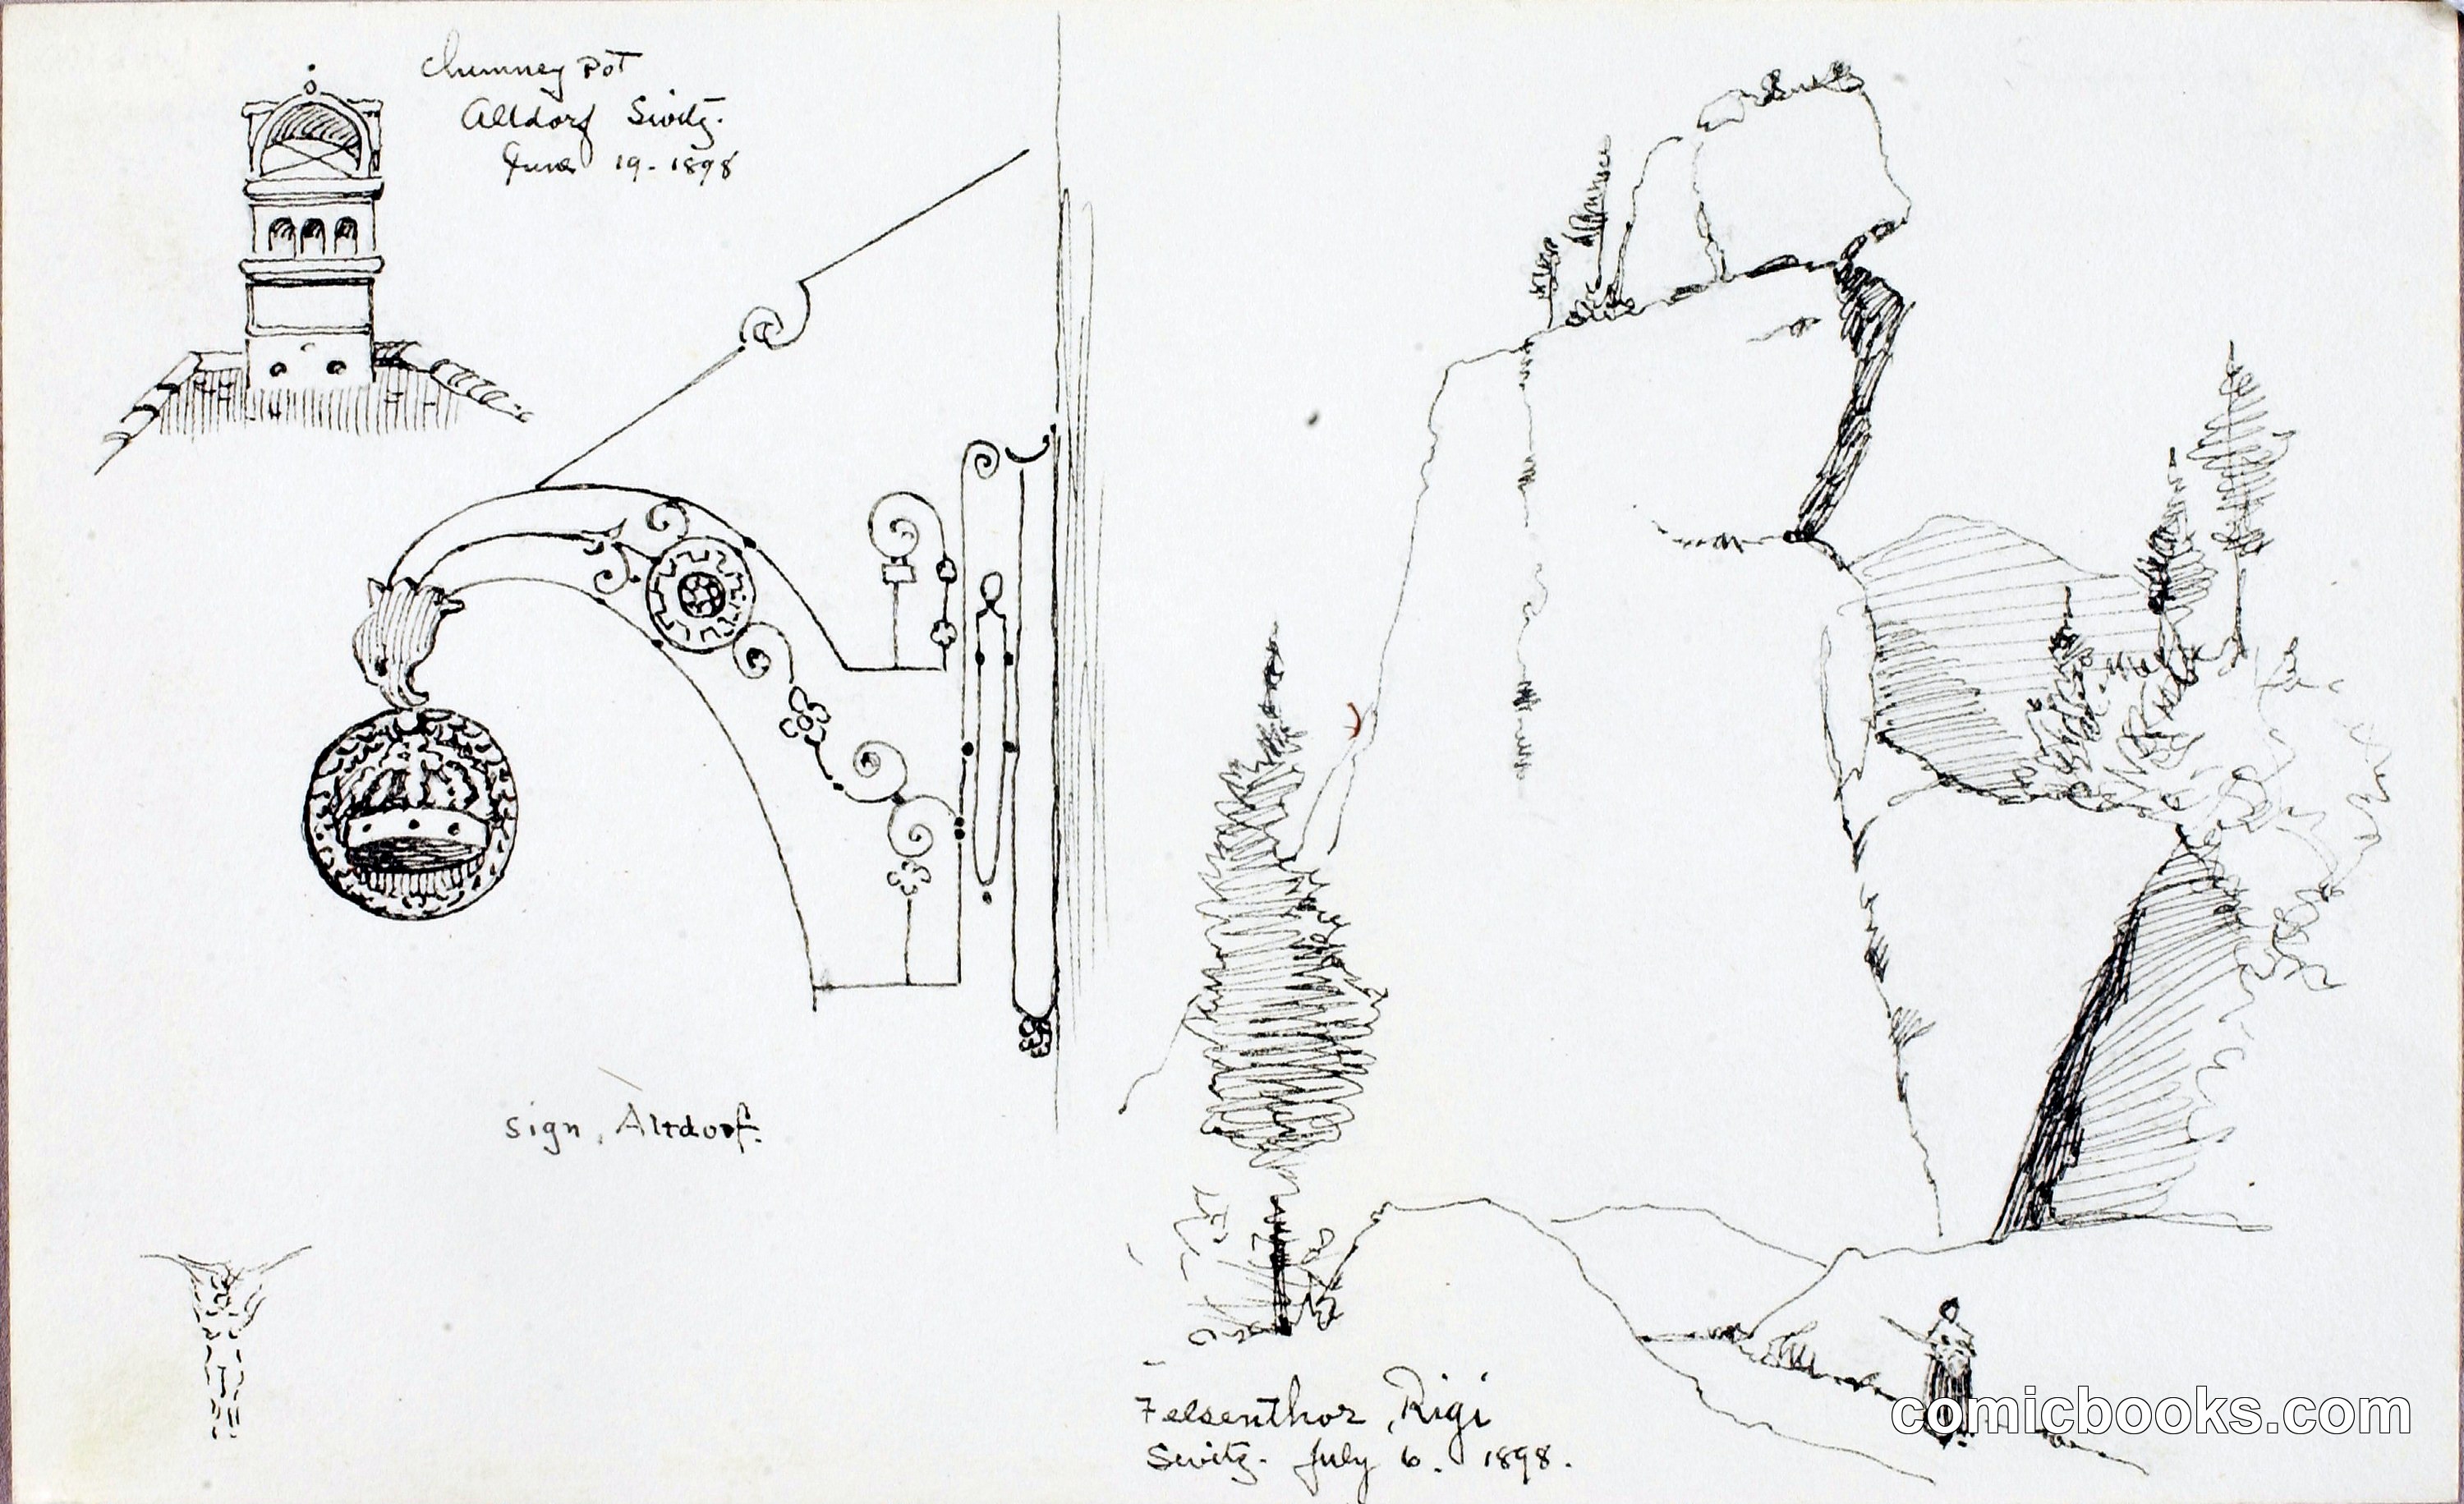 Chimney Pot
Altdorf Switz.
June 19. 1898
Sign, Altdorf.
Felsenthor, Rigi
Switz. July 6. 1898.
comicbooks.com